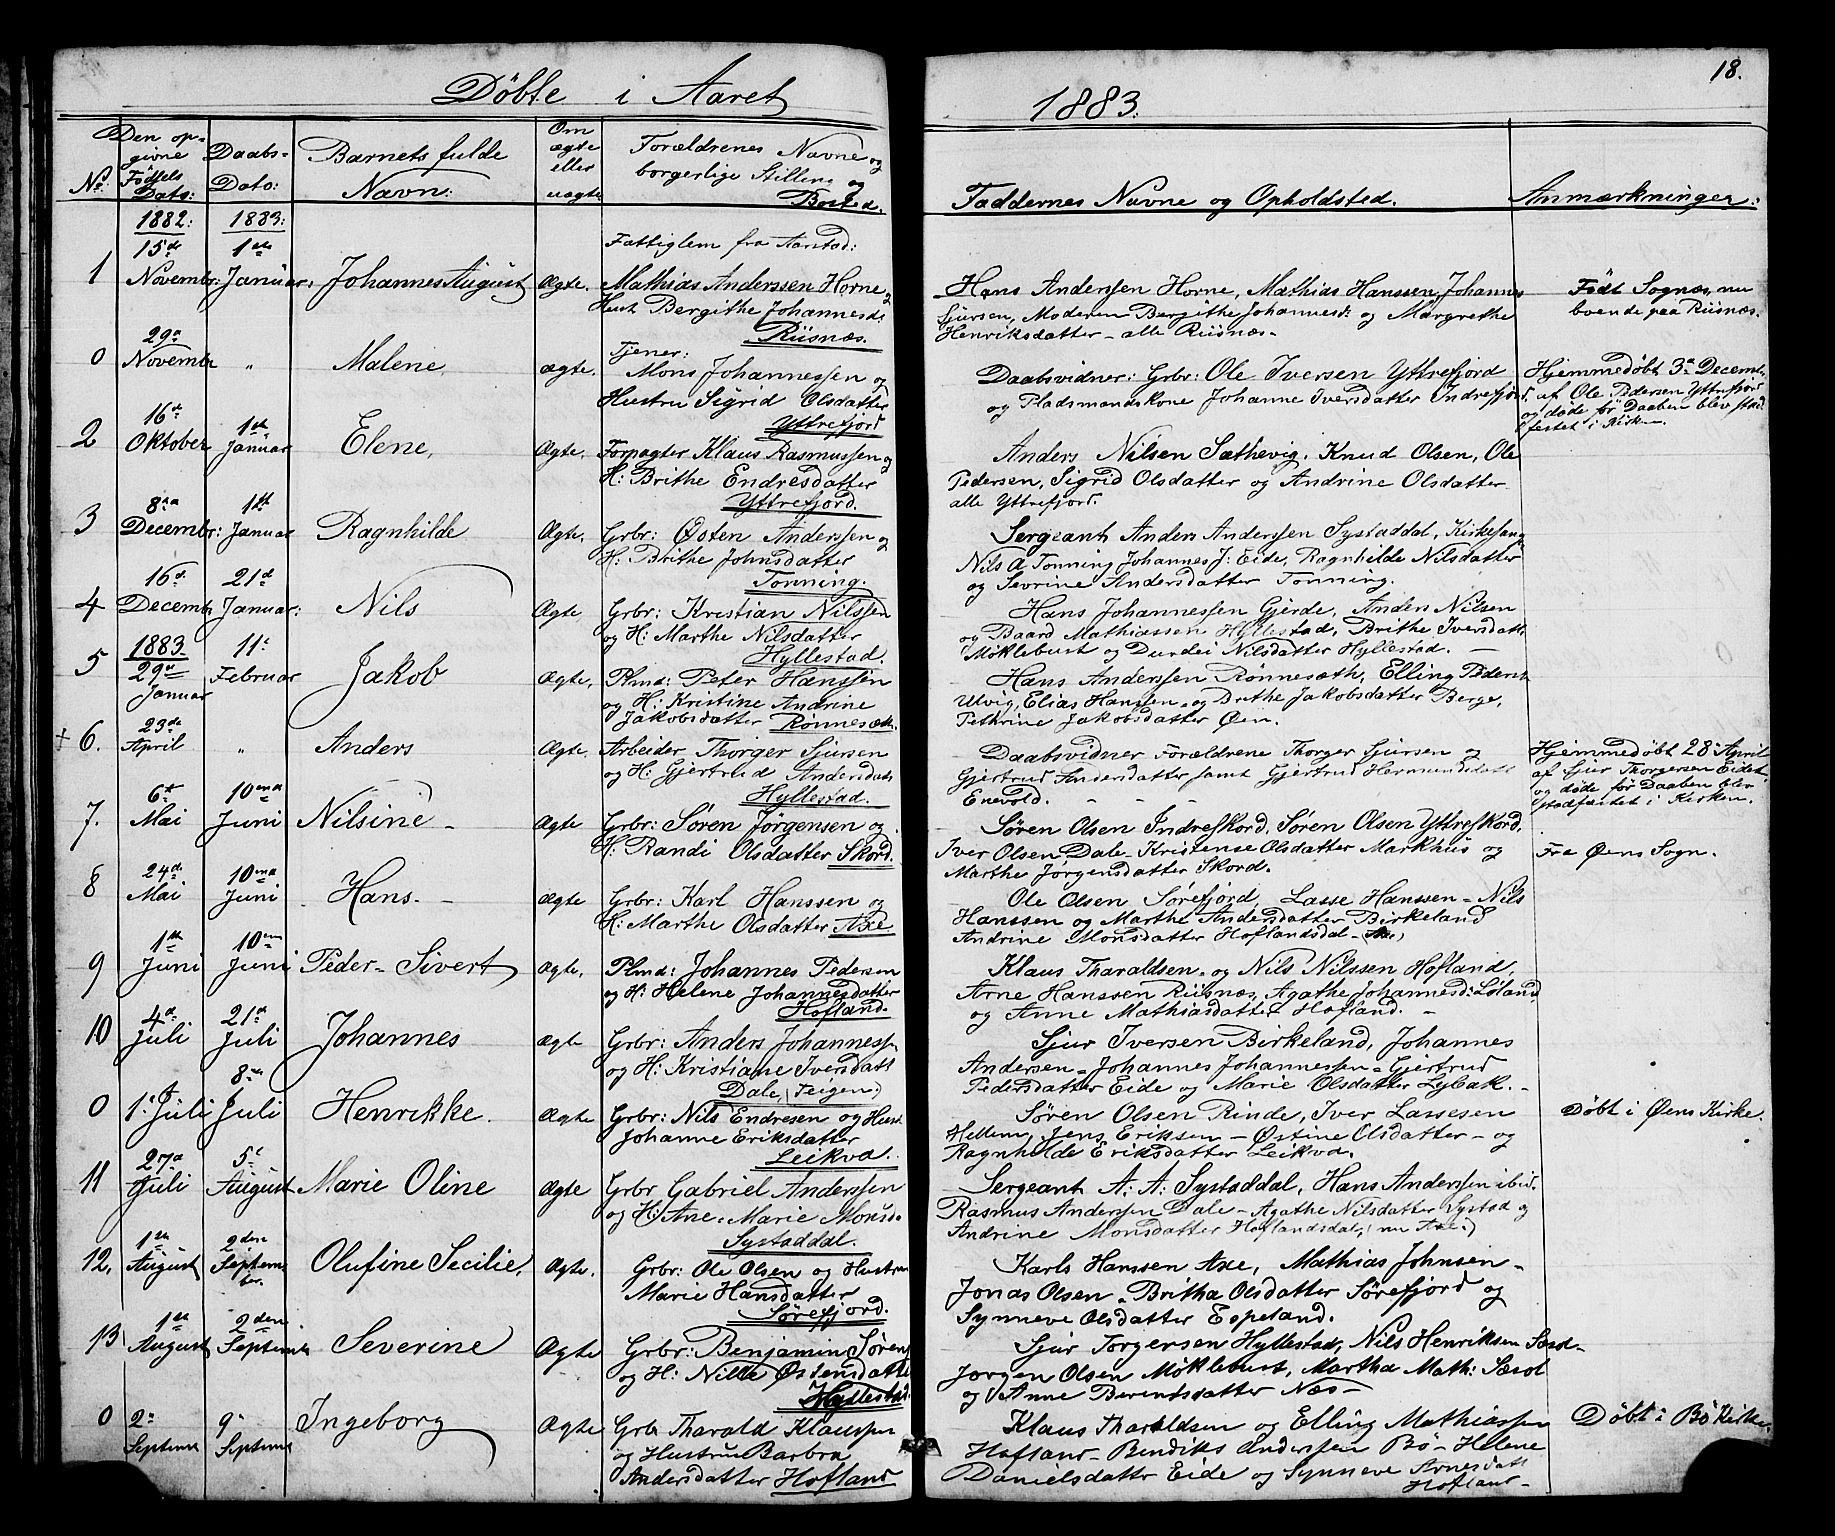 18.
Döbte i Aaret 1883.
No. Den opgivne Födsels Dato: Daabs-Dato: Barnets fulde Navn: Om ægte eller uægte Forældrenes Navne og borgerlige Stilling og Bosted. Faddernes Navne og Opholdsted. Anmærkninger:
1882: 1883:
1 15de Novembr: 1ste Januar: Johannes August Ægte.
Fattiglem fra Aarstad:
Mathias Anderssen Horne,
Hust Bergithe Johannesd:
Riisnæs.
Hans Anderssen Horne, Mathias Hanssen, Johannes
Sjursen, Moderen Bergithe Johannesd: og Margrethe
Henriksdatter - alle Riisnæs -
Födt Sognæs, nu
boende paa Riisnæs.
0 29a Novembr " Malene, ægte.
Tjener:
Mons Johannessen og
Hustru Sigrid Olsdatter
Yttrefjord
Daabsvidner: Grbr: Ole Iversen Yttrefjord
og Pladsmandskone Johanne Iversdatter Indrefjord.
Hjemmedöbt 3a Decemb:
af Ole Pedersen Yttrefjord
og döde för Daaben blev stad
festet i Kirken.
2 16de Oktober 1ste Januar Elene, Ægte.
Forpagter Klaus Rasmussen og
H: Brithe Endresdatter
Yttrefjord.
Anders Nilsen Sæthevig. Knud Olsen, Ole
Pedersen, Sigrid Olsdatter og Andrine Olsdatter
alle Yttrefjord.
3 8de Decembr: 1ste Januar Ragnhilde Ægte.
Grbr: Östen Anderssen og
H: Brithe Johnsdatter
Tonning.
Sergeant Anders Anderssen Systaddal, Kirkesang
Nils A Tonning Johannes J: Eide, Ragnhilde Nilsdatter
og Sevrine Andersdatter Tonning.
4 16d. Decembr 21d Januar: Nils Ægte
Grbr: Kristian Nilssen
og H: Marthe Nilsdatter
Hyllestad.
Hans Johannessen Gjerde, Anders Nilsen
og Baard Mathiassen Hyllestad, Brithe Iversdatt:
Möklebust og Durdei Nilsdatter Hyllestad. -
1883
5 29de Januar 11te Februar Jakob Ægte,
Plmd: Peter Hanssen
og H: Kristine Andrine
Jakobsdatter Rönnesæth.
Hans Anderssen Rönnesæth, Elling Peders:
Ulvig, Elias Hanssen og Brithe Jakobsdatter Berge,
Pethrine Jakobsdatter Öen.
+ 6. 23de April " Anders Ægte.
Arbeider Thorger Sjursen
og H: Gjertrud Andersdatt
Hyllestad.
Daabsvidner Forældrene Thorger Sjursen og
Gjertrud Andersdatter samt Gjertrud Hermundsdatt
Enevold.
Hjemmedöbt 28: April
af Sjur Thorgersen Eidet
og döde för Daaben blev
stadfæstet i Kirken.
7. 6te Mai 10ende Juni Nilsine - Ægte
Grbr: Sören Jörgensen og
H: Randi Olsdatter Skord.
Sören Olsen Indreskord, Sören Olsen Yttreskord,
Iver Olsen Dale - Kristense Olsdatter Markhus og
Marthe Jörgensdatter Skord.
Fra Öens Sogn.
8 24d. Mai 10ma Juni Hans. - ægte
Grbr: Karl Hanssen og
H: Marthe Olsdatter Axe
Ole Olsen Sörefjord, Lasse Hanssen - Nils
Hanssen og Marthe Andersdatter Birkeland
Andrine Monsdatter Hoflandsdal - (Axe)
9 1ste Juni 10ende Juni Peder - Sivert Ægte,
Plmd: Johannes Pedersen
og H: Helene Johannesdatter
Hofland.
Klaus Tharaldsen og Nils Nilssen Hofland,
Arne Hanssen Riisnæs, Agathe Johannesd: Löland
og Anne Mathiasdatter Hofland. -
10 4a. Juli 21a Juli Johannes ægte
Grbr: Anders Johannessn
og H: Kristiane Iversdatt
Dale, (Teigen)
Sjur Iversen Birkeland, Johannes
Andersen - Johannes Johannessen - Gjertrud
Pedersdatter Eide og Marie Olsdatter Lybæk. -
0 1: Juli 8de Juli Henrikke. Ægte:
Grbr: Nils Endresen og Hust.
Johanne Eriksdatter
Leikva.
Sören Olsen Rinde, Iver Lassesen
Hellem, Jens Eriksen - Östine Olsdatter - og
Ragnhilde Eriksdatter Leikva.
Döbt i Öens Kirke.
11 27a Juli 5t August Marie Oline ægte
Grbr Gabriel Anderssen
og H: Ane - Marie Monsd.
Systaddal.
Sergeant A: A: Systaddal, Hans Anderssen ibid.
Rasmus Anderssen Dale - Agathe Nilsdatter Systad og
Andrine Monsdatter Hoflandsdal, (nu Axe.)
12. 1ste August 2den Septem-ber. Olufine Secilie, Ægte.
Grbr: Ole Olsen og Hustru
Marie Hansdatter
Sörefjord.
Karls Hanssen Axe, Mathias Johnsen -
Jonas Olsen - Britha Olsdatter Sörefjord og
Synneve Olsdatter Espeland.
13 1ste August 2den Septembr Severine Ægte
Grbr: Benjamin Sörens
og H: Nille Östensdatter
Hyllestad.
Sjur Torgersen Hyllestad, Nils Henriksen Særsol -
Jörgen Olsen Möklebust, Martha Math: Særsol
og Anne Berentsdatter Næs -
0 2- Septemb 9- Septemb Ingeborg Ægte
Grbr Tharald Klaussen
og Hustru Barbra
Andersdatter Hofland
Klaus Tharaldsen og Elling Mathiassen
Hofland - Bendiks Anderssen Bö - Helene
Danielsdattr Eide og Synneve Arnesdatt
Hofland -
Döbt i Bö Kirke.